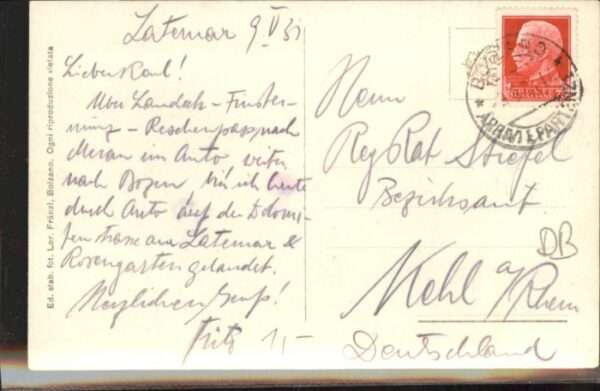 Latemar 9 V 31
Lieber Karl!
Über Landeck - Finster-
münz - Reschenpass nach
Meran im Auto weiter
nach Bozen bin ich heute
durch Auto auf der Dolomi-
tenstrasse am Latemar &
Rosengarten gelandet.
Herzlichen Gruß!
Fritz
1,-
Herrn
Reg Rat Stiefel
Bezirksamt
DB
Kehl a/Rhein
Deutschland
Ed. stab. fot. Lor. Fränzl, Bolzano. Ogni riproduzione vietata
ARRIVI E PARTENZE